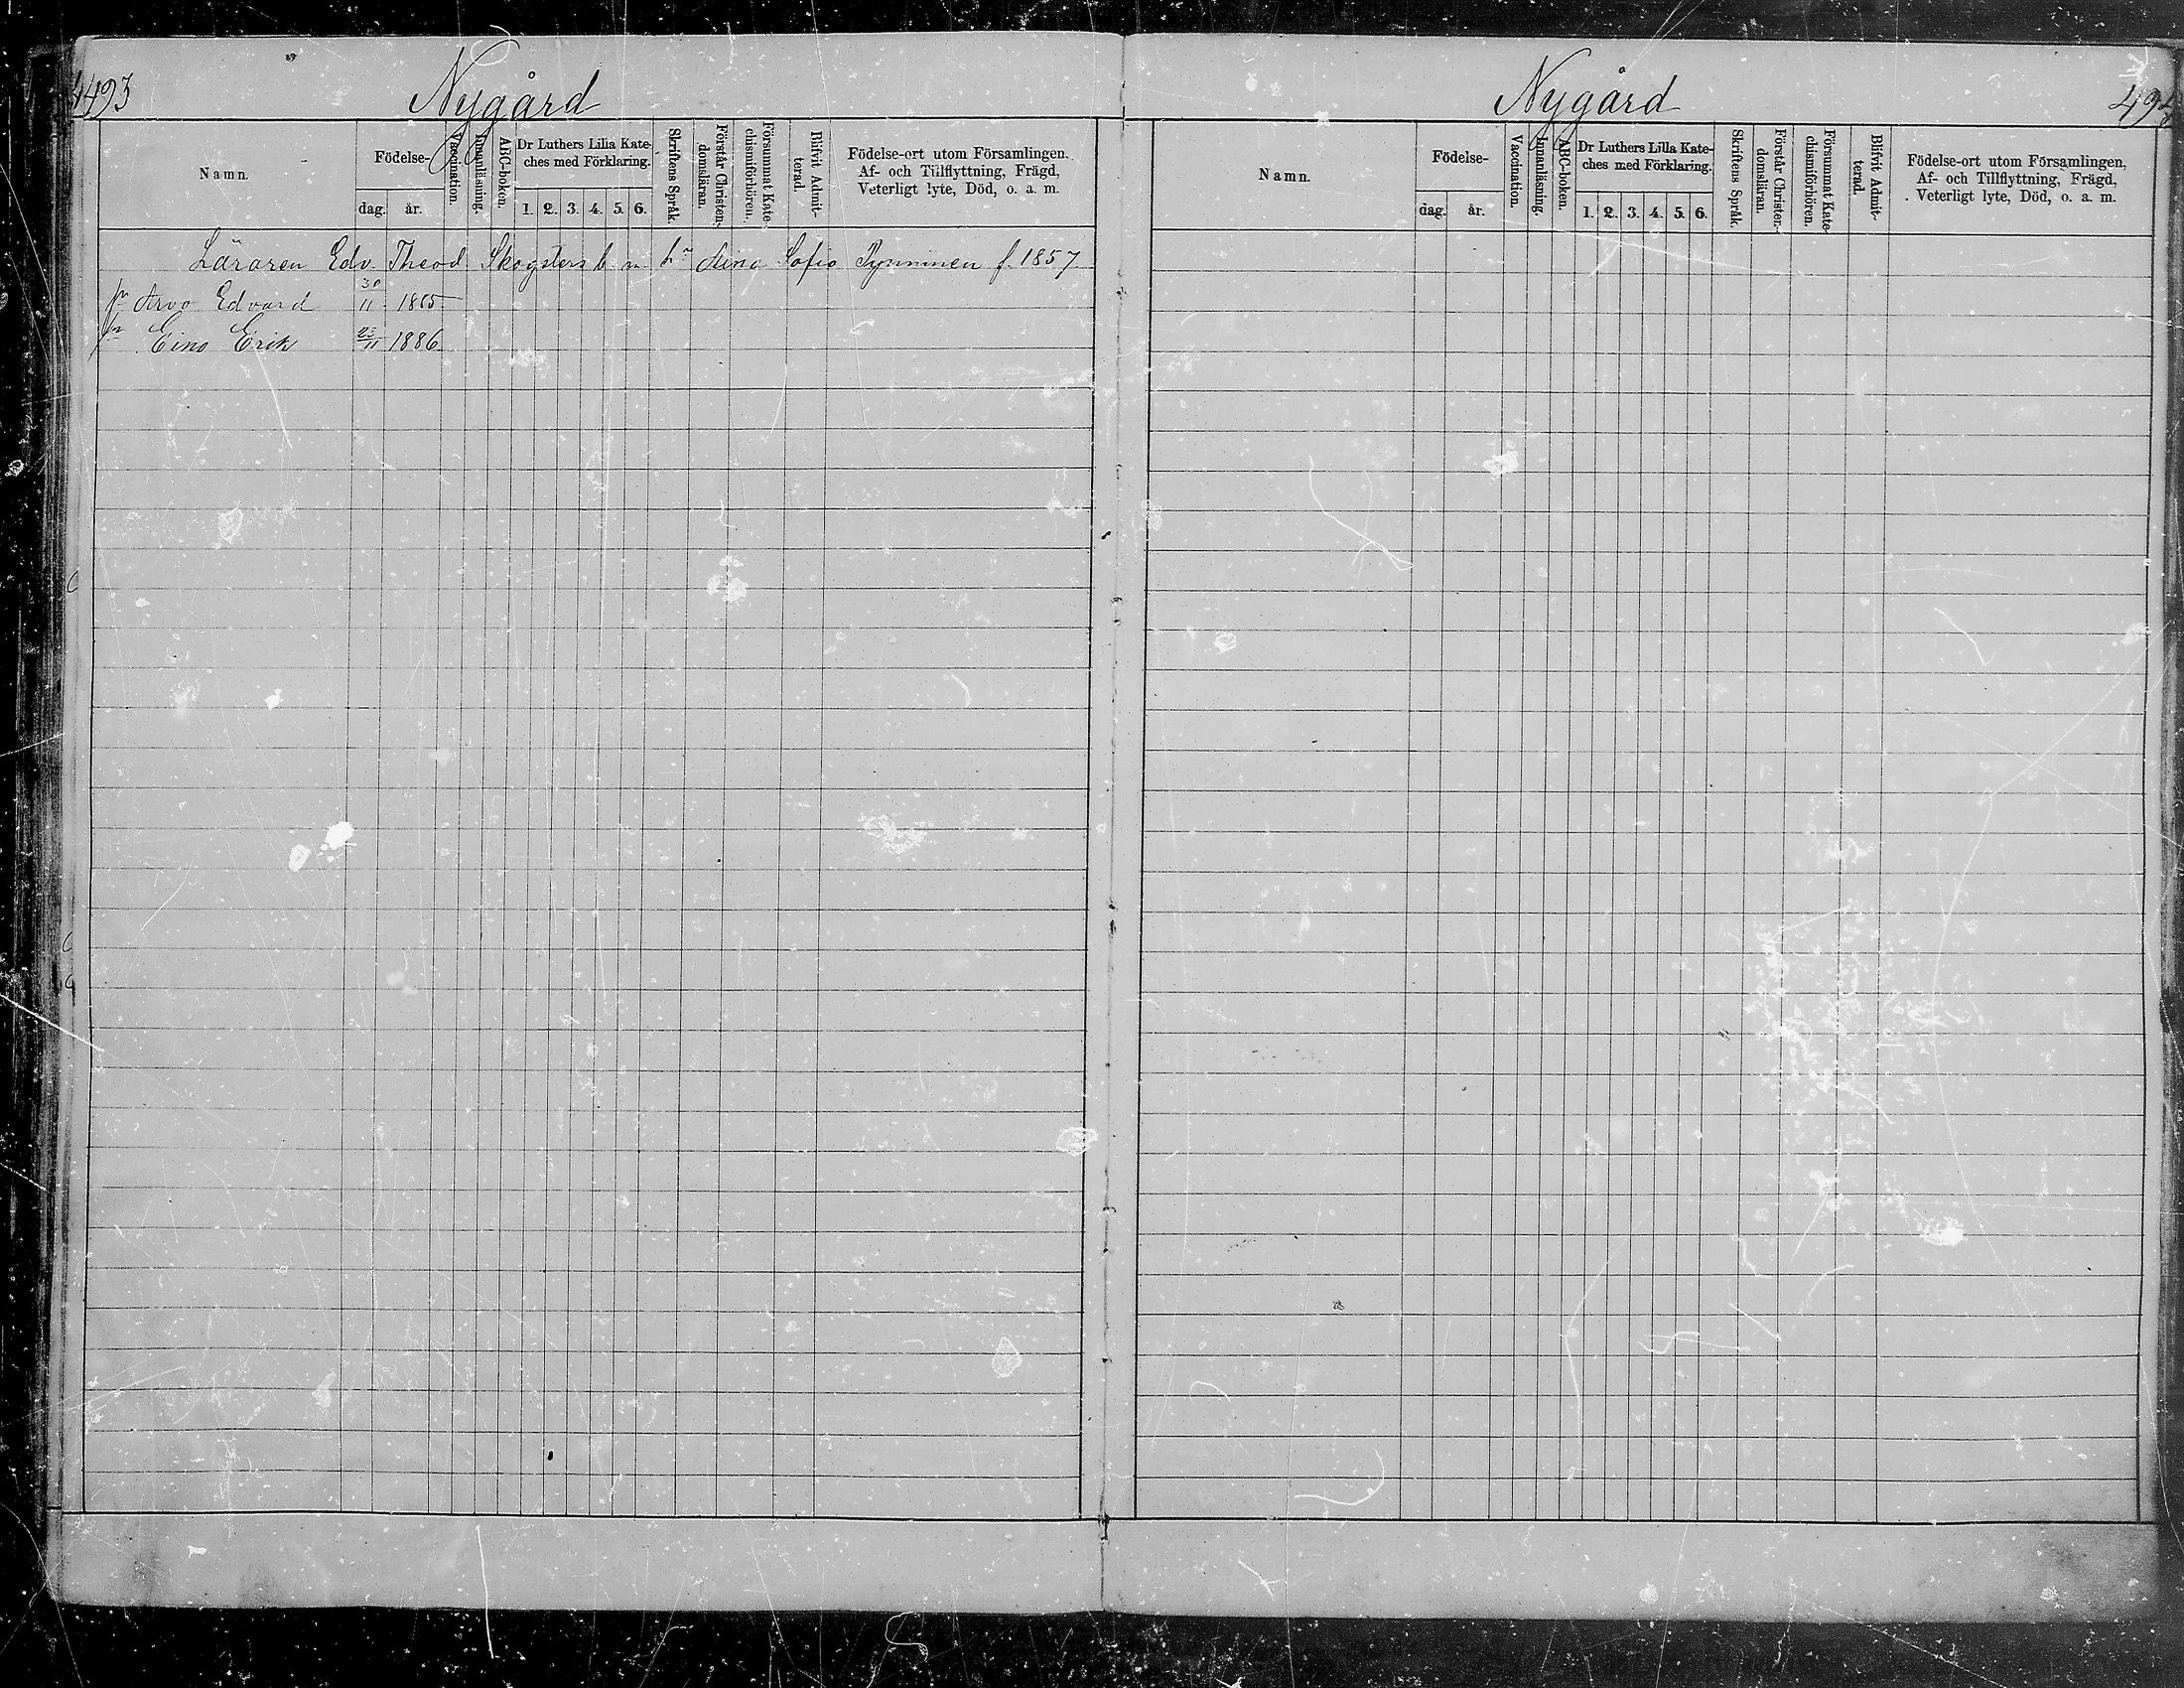 493
Nygård
Namn.
Födelse-
dag.
år.
Vaccination.
Innanläsning.
ABC-boken.
Dr Luthers Lilla Kate-
ches med Förklaring.
1. 2. 3. 4. 5. 6.
Skriftens Språk.
Förstår Christen-
domsläran.
Försummat Kate-
chismiförhören.
Blifvit Admit-
terad.
Födelse-ort utom Församlingen.
Af- och Tillflyttning, Frägd,
Veterligt lyte, Död, o. a. m.
Läraren Edv. Theod. Skogsters b. m. Sofia Pynninen f. 1857
Arvo Edvard 30/11 1885
Eino Erik 23/11 1886
Nygård
494
Namn.
Födelse-
dag.
år.
Vaccination.
Innanläsning.
ABC-boken.
Dr Luthers Lilla Kate-
ches med Förklaring.
1. 2. 3. 4. 5. 6.
Skriftens Språk.
Förstår Christen-
domsläran.
Försummat Kate-
chismiförhören.
Blifvit Admit-
terad.
Födelse-ort utom Församlingen,
Af- och Tillflyttning, Frägd,
Veterligt lyte, Död, o. a. m.